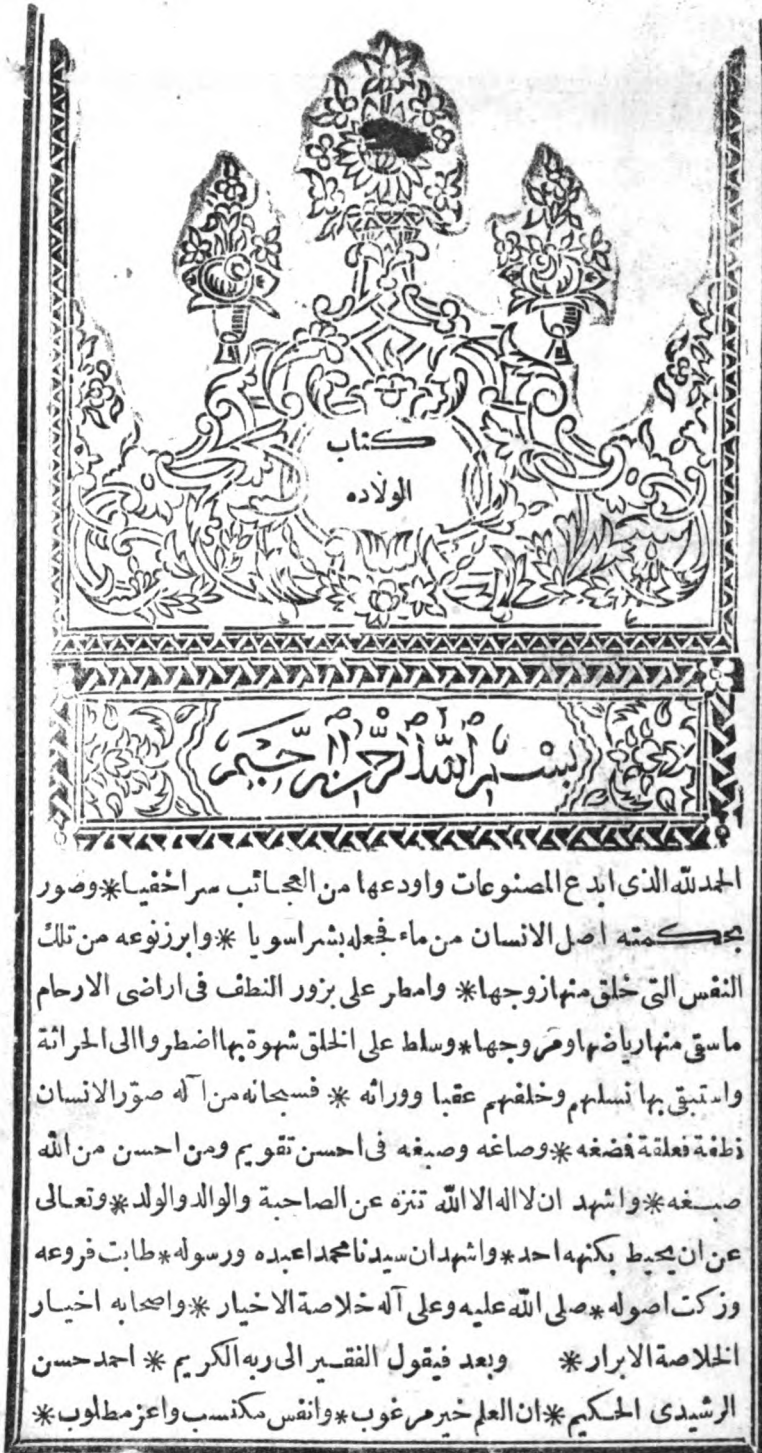 كتاب
الولاده
بسم الله الرحمن الرحيم
الحمد لله الذى ابدع المصنوعات واودعها من العجائب سراخفيا * وصور
بحكمته اصل الانسان من ماء فجعله بشراسويا * وابرزنوعه من تلك
النفس التى خلق منها زوجها * وامطر على بزور النطف فى اراضى الارحام
ماسقى منها رياضها ومروجها * وسلط على الخلق شهوة بها اضطروا الى الحراثة
واستبقى بها نسلهم وخلفهم عقبا وورائه * فسبحانه من آله صوّر الانسان
نطفة فعلقة فضغه * وصاغه وصبغه فى احسن تقويم ومن احسن من الله
صبغه * واشهد ان لااله الا الله تنزه عن الصاحبة والوالد والولد * وتعالى
عن ان يحيط بكنهه احد * واشهد ان سيدنا محمدا عبده ورسوله * طابت فروعه
وزكت اصوله * صلى الله عليه وعلى آله خلاصة الاخيار * واصحابه اخيار
الخلاصة الابرار * وبعد فيقول الفقير الى ربه الكريم * احمد حسن
الرشيدى الحكيم * ان العلم خير مرغوب * وانفس مكتسب واعز مطلوب *